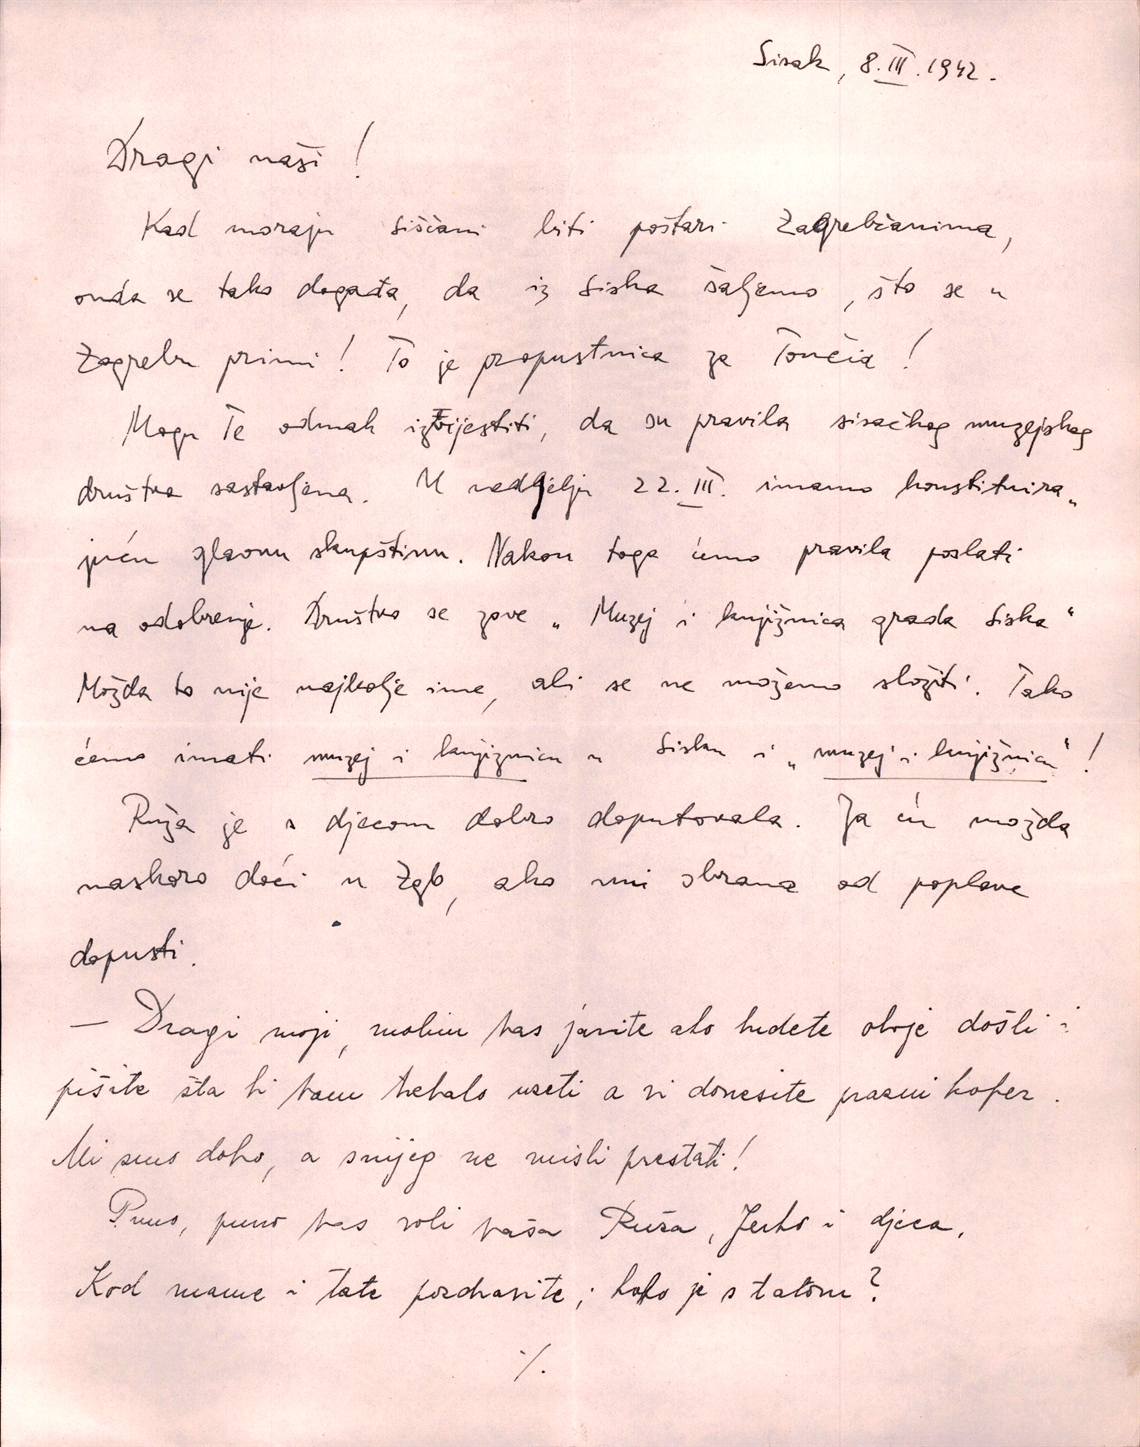 Sisak, 8.III.1942.
Dragi naši!
Kad moraju Siščani biti poštari Zagrebčanima,
onda se tako događa, da iz Siska šaljemo, što se u
Zagrebu primi! To je propustnica za Tončia!
Mogu Te odmah izvijestiti, da su pravila sisačkog muzejskog
društva sastavljena. U nedjelju 22.III. imamo konstituira„
juću glavnu skupštinu. Nakon toga ćemo pravila poslati
na odobrenje. Društvo se zove „Muzej i knjižnica grada Siska“
Možda to nije najbolje ime, ali se ne možemo složiti. Tako
ćemo imati muzej i knjižnicu u Sisku i „muzej i knjižnicu“!
Ruža je s djecom dobro doputovala. Ja ću možda
naskoro doći u Zgb, ako mi obrana od poplave
dopusti.
— Dragi moji, molim vas javite ako budete oboje došli i
pišite šta bi vam trebalo uzeti a vi donesite prazni kofer.
Mi smo dobro, a snijeg ne misli prestati!
Puno, puno vas voli vaša Ruža, Jerko i djeca.
Kod mame i tate pozdravite; kako je s tatom?
./.